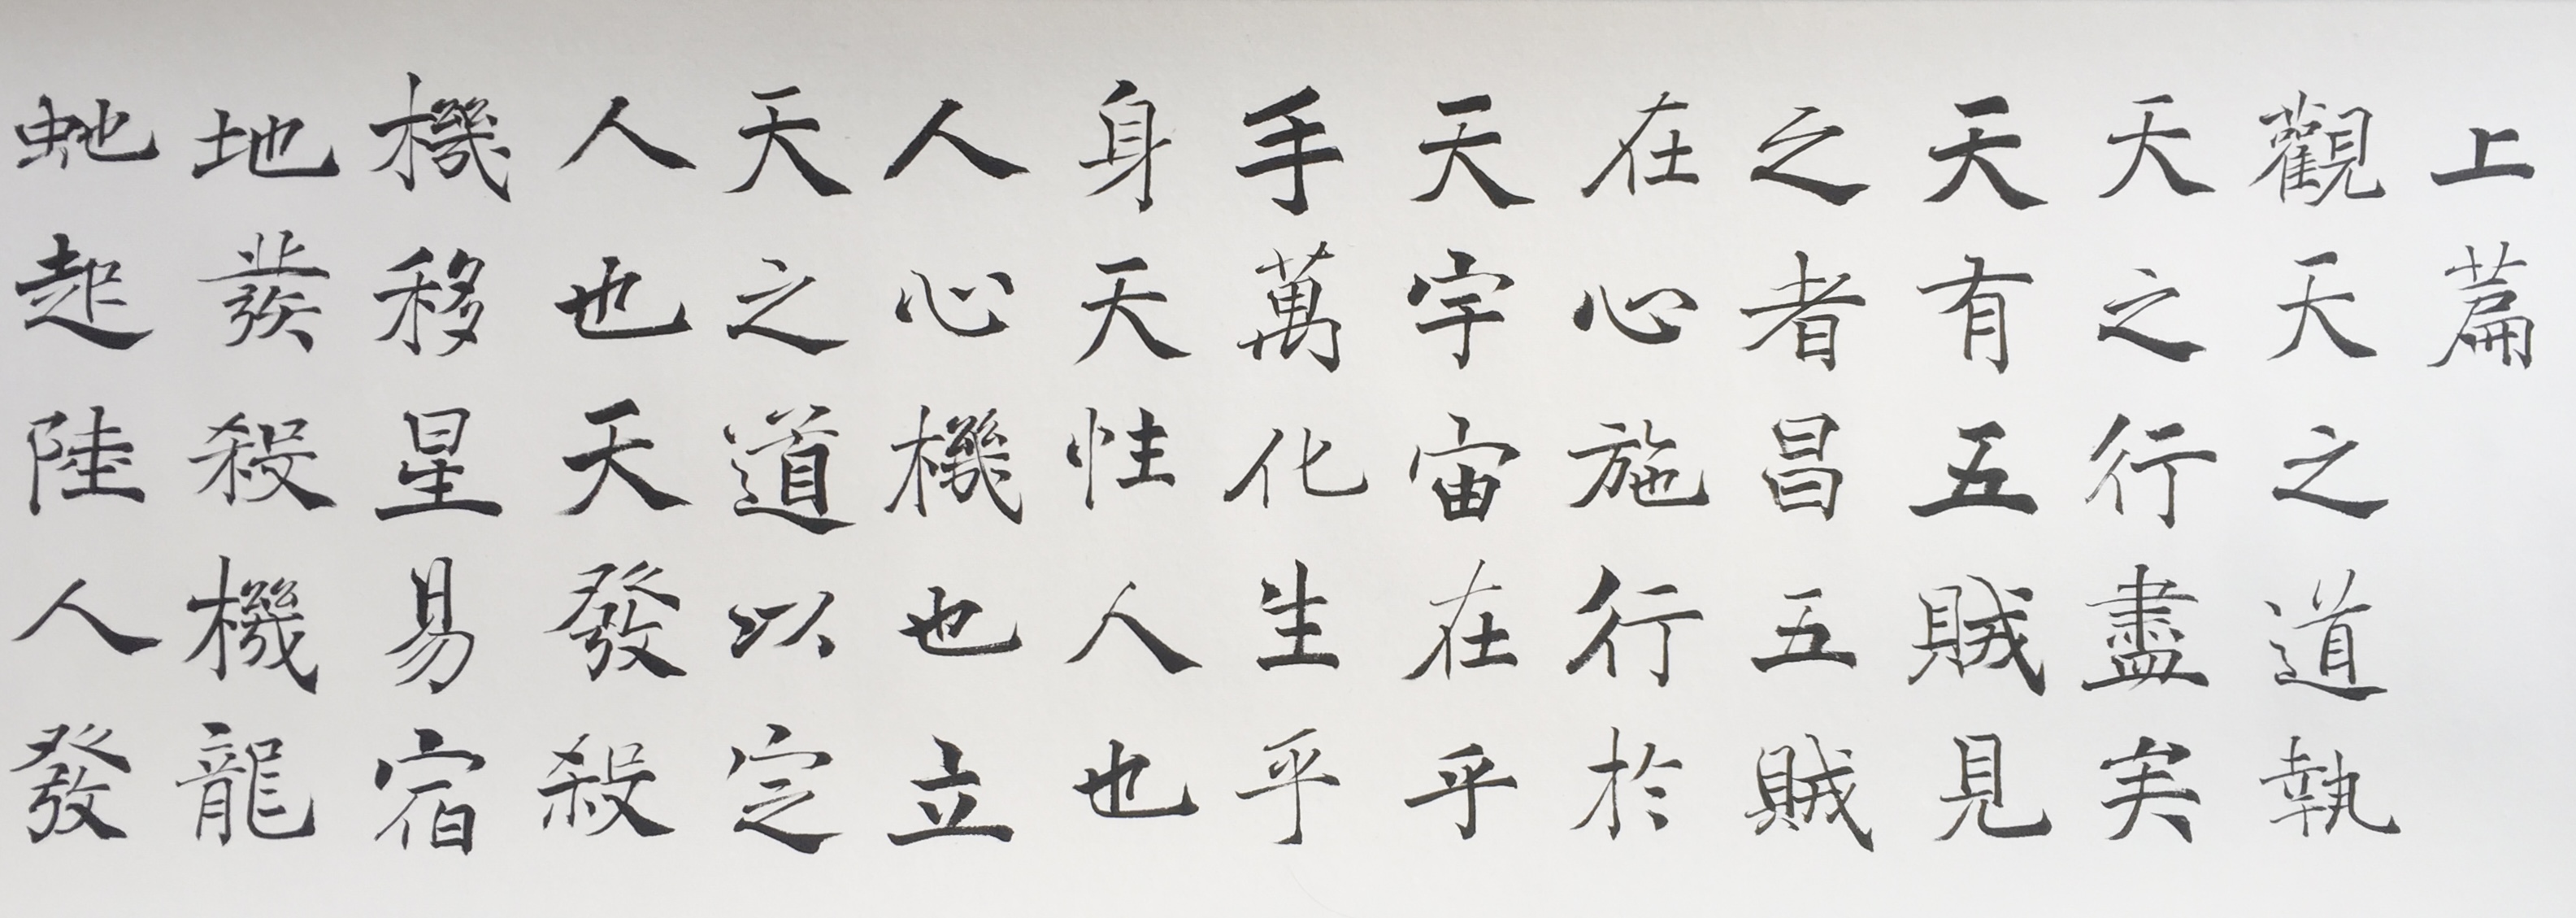 上篇
觀天之道執
天之行盡矣
天有五賊見
之者昌五賊
在心施行於
天宇宙在乎
手萬化生乎
身天性人也
人心機也立
天之道以定
人也天發殺
機移星易宿
地發殺機龍
虵起陸人發